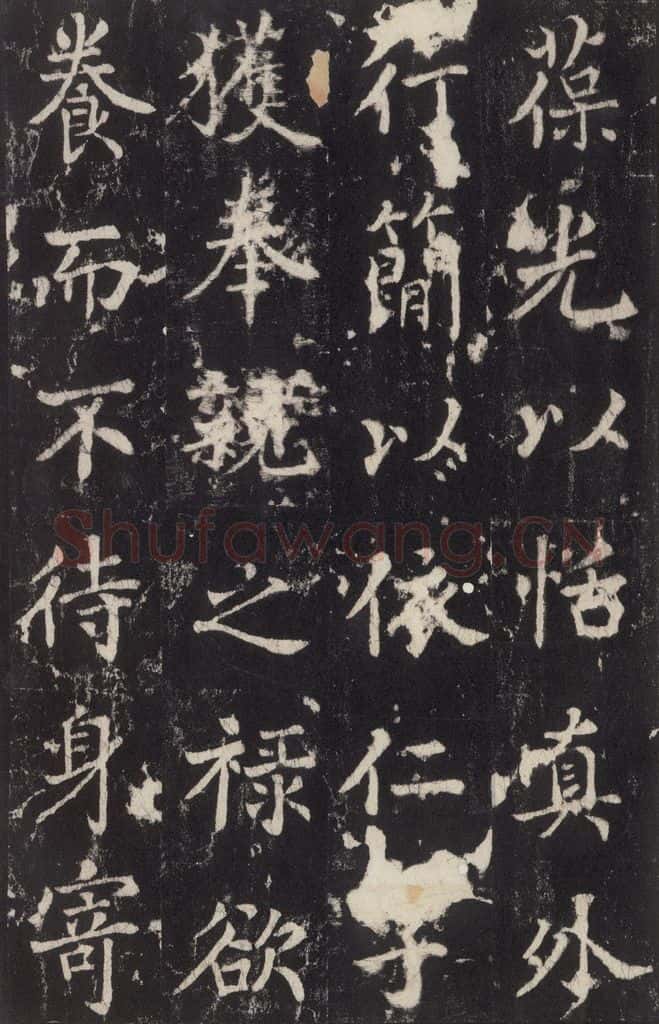 葆光以恬真外
行簡以依仁子
獲奉親之禄欲
養而不待身寄
Shufawang.CN